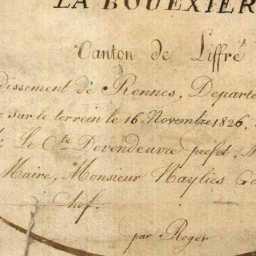 LA BOUEXIER
Canton de Liffré
dissement de Rennes, Departe
sur le terrein le 16 Novembre 1826,
Le Cte Devendeuvre prefet,
Maire, Monsieur Haylies G
Chef.
par Roger